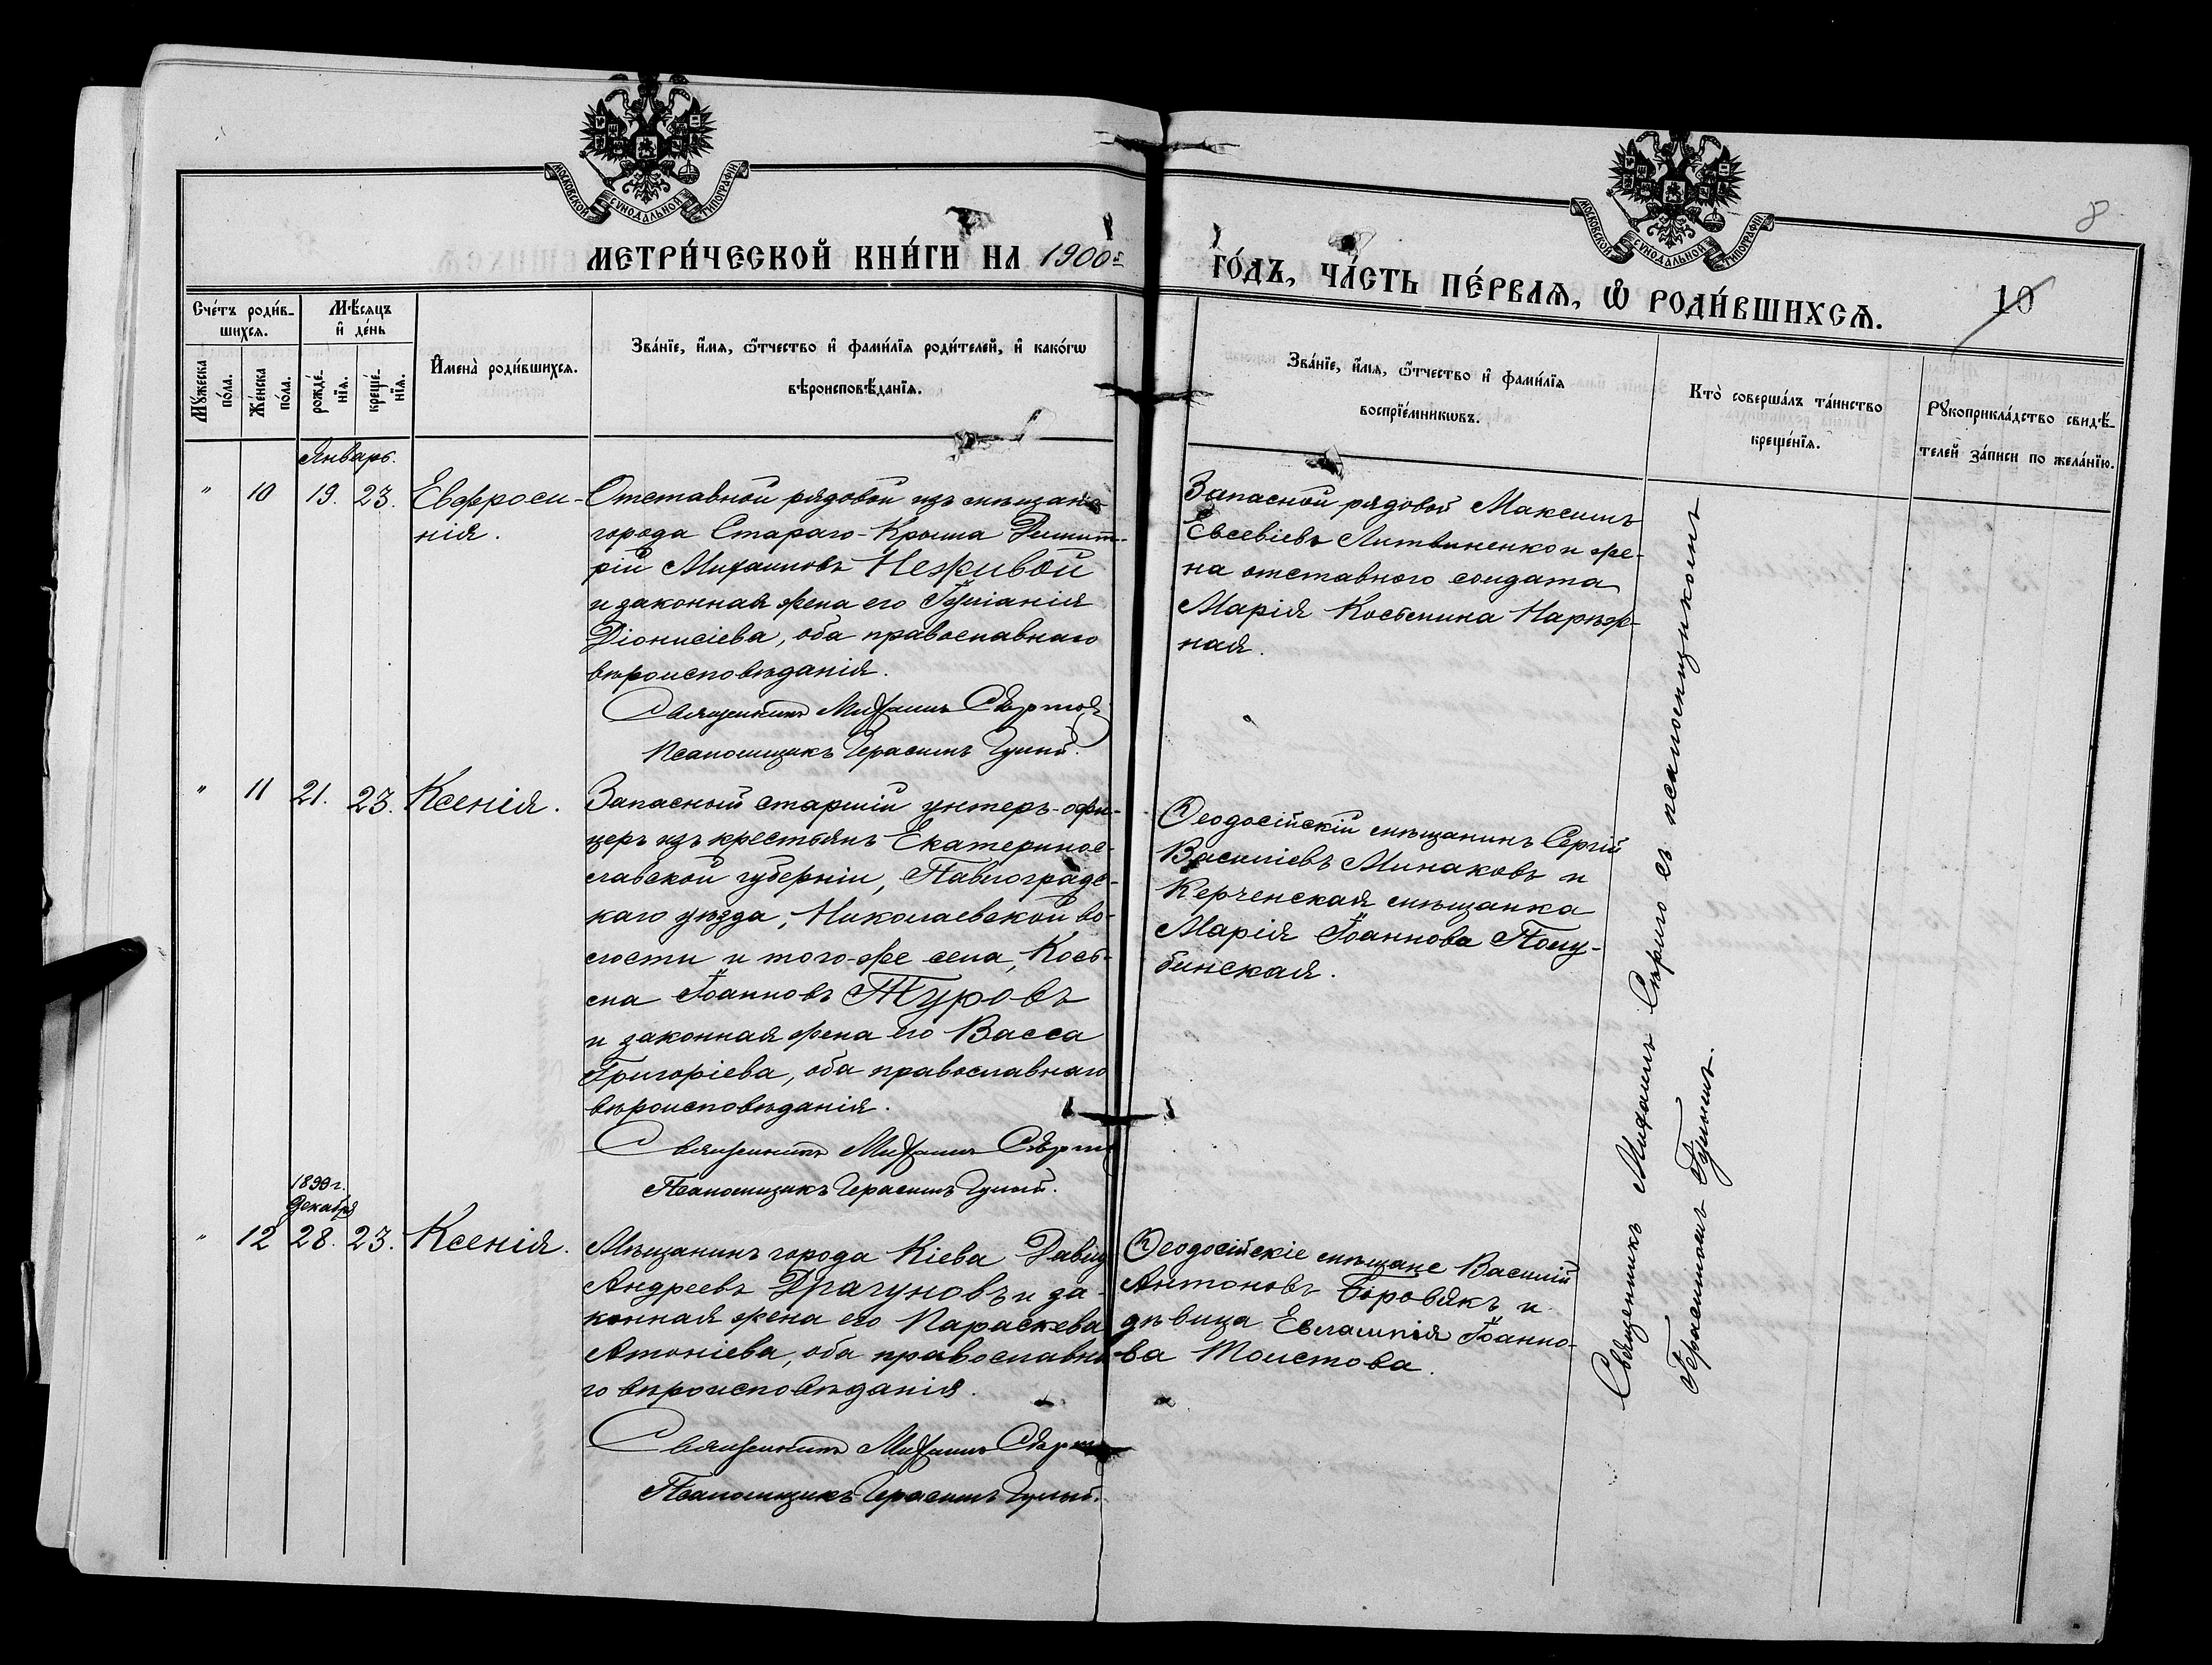 МОСКОВСКОЙ СѴНОДАЛЬНОЙ ТИПОГРАФІИ
МОСКОВСКОЙ СѴНОДАЛЬНОЙ ТИПОГРАФІИ
8
МЕТРИ́ЧЕСКОЙ КНИ́ГИ НА 1900й
ГО́ДЪ, ЧА́СТЬ ПЕ́РВАѦ, Ѡ҆ РОДИ́ВШИХСѦ.
10
Сче́тъ роди́в-
шихсѧ.
Мꙋ́жеска
по́ла.
Же́нска
по́ла.
Мѣ́сѧцъ
и҆ де́нь
рожде́-
нїѧ.
креще́-
нїѧ.
И҆мена̀ роди́вшихсѧ.
Зва́нїе, и҆́мѧ, ѻ҆́тчество и҆ фами́лїѧ роди́телей, и҆ како́гѡ
вѣроисповѣ́данїѧ.
Зва́нїе, и҆́мѧ, ѻ҆́тчество и҆ фами́лїѧ
воспрїе́мникѡвъ.
Кто̀ соверша́лъ та́инство
креще́нїѧ.
Рꙋкоприкла́дство свидѣ́-
телей за́писи по жела́нїю.
Январь.
" 10 19. 23. Евфроси-
нія.
Отставной рядовой изъ мѣщанъ
города Стараго-Крыма Димит-
рій Михаиловъ Неживой
и законная жена его Іуліанія
Діонисіева, оба православнаго
вѣроисповѣданія.
Священникъ Михаилъ Сѣрый
Псаломщикъ Герасимъ
Запасной рядовой Максимъ
Евсевіевъ Литвиненко и же-
на отставного солдата
Марія Косьмина Нарѣж-
ная.
" 11 21. 23. Ксенія.
Запасный старшій унтеръ-офи-
церъ изъ крестьянъ Екатеринос-
лавской губерніи, Павлоградс-
каго уѣзда, Николаевской во-
лости и того-же села, Кось-
ма Іоанновъ Туровъ
и законная жена его Васса
Григоріева, оба православнаго
вѣроисповѣданія.
Священникъ Михаилъ
Псаломщикъ Герасимъ
Ѳеодосійскій мѣщанинъ Сергій
Василіевъ Минаковъ и
Керченская мѣщанка
Марія Іоаннова Голу-
бинская.
1899 г.
Декабря
" 12 28. 23. Ксенія.
Мѣщанинъ города Кіева Давид
Андреевъ Драгуновъ и за-
конная жена его Параскева
Антоніева, оба православна-
го вѣроисповѣданія.
Священникъ Михаилъ
Псаломщикъ Герасимъ
Ѳеодосійскіе мѣщане Василій
Антоновъ Боровякъ и
дѣвица Евлампія Іоанно-
ва Толстова.
Священникъ Михаилъ Сѣрый съ псаломщикомъ
Герасимомъ